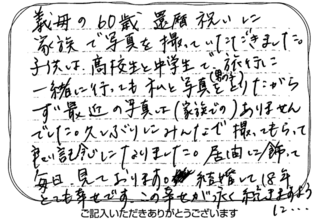 義母の60歳 還暦祝いに
家族で写真を撮っていただきました。
子供は、高校生と中学生で、旅行に
一緒に行っても 私と写真を(男の子)とりたがら
ず 最近の写真は(家族での)ありません
でした。久しぶりにみんなで 撮ってもらって
良い記念になりました。居間に飾って
毎日、見ております。結婚して18年
とても幸せです。この幸せが永く続きますよう
に…
ご記入いただきありがとうございます